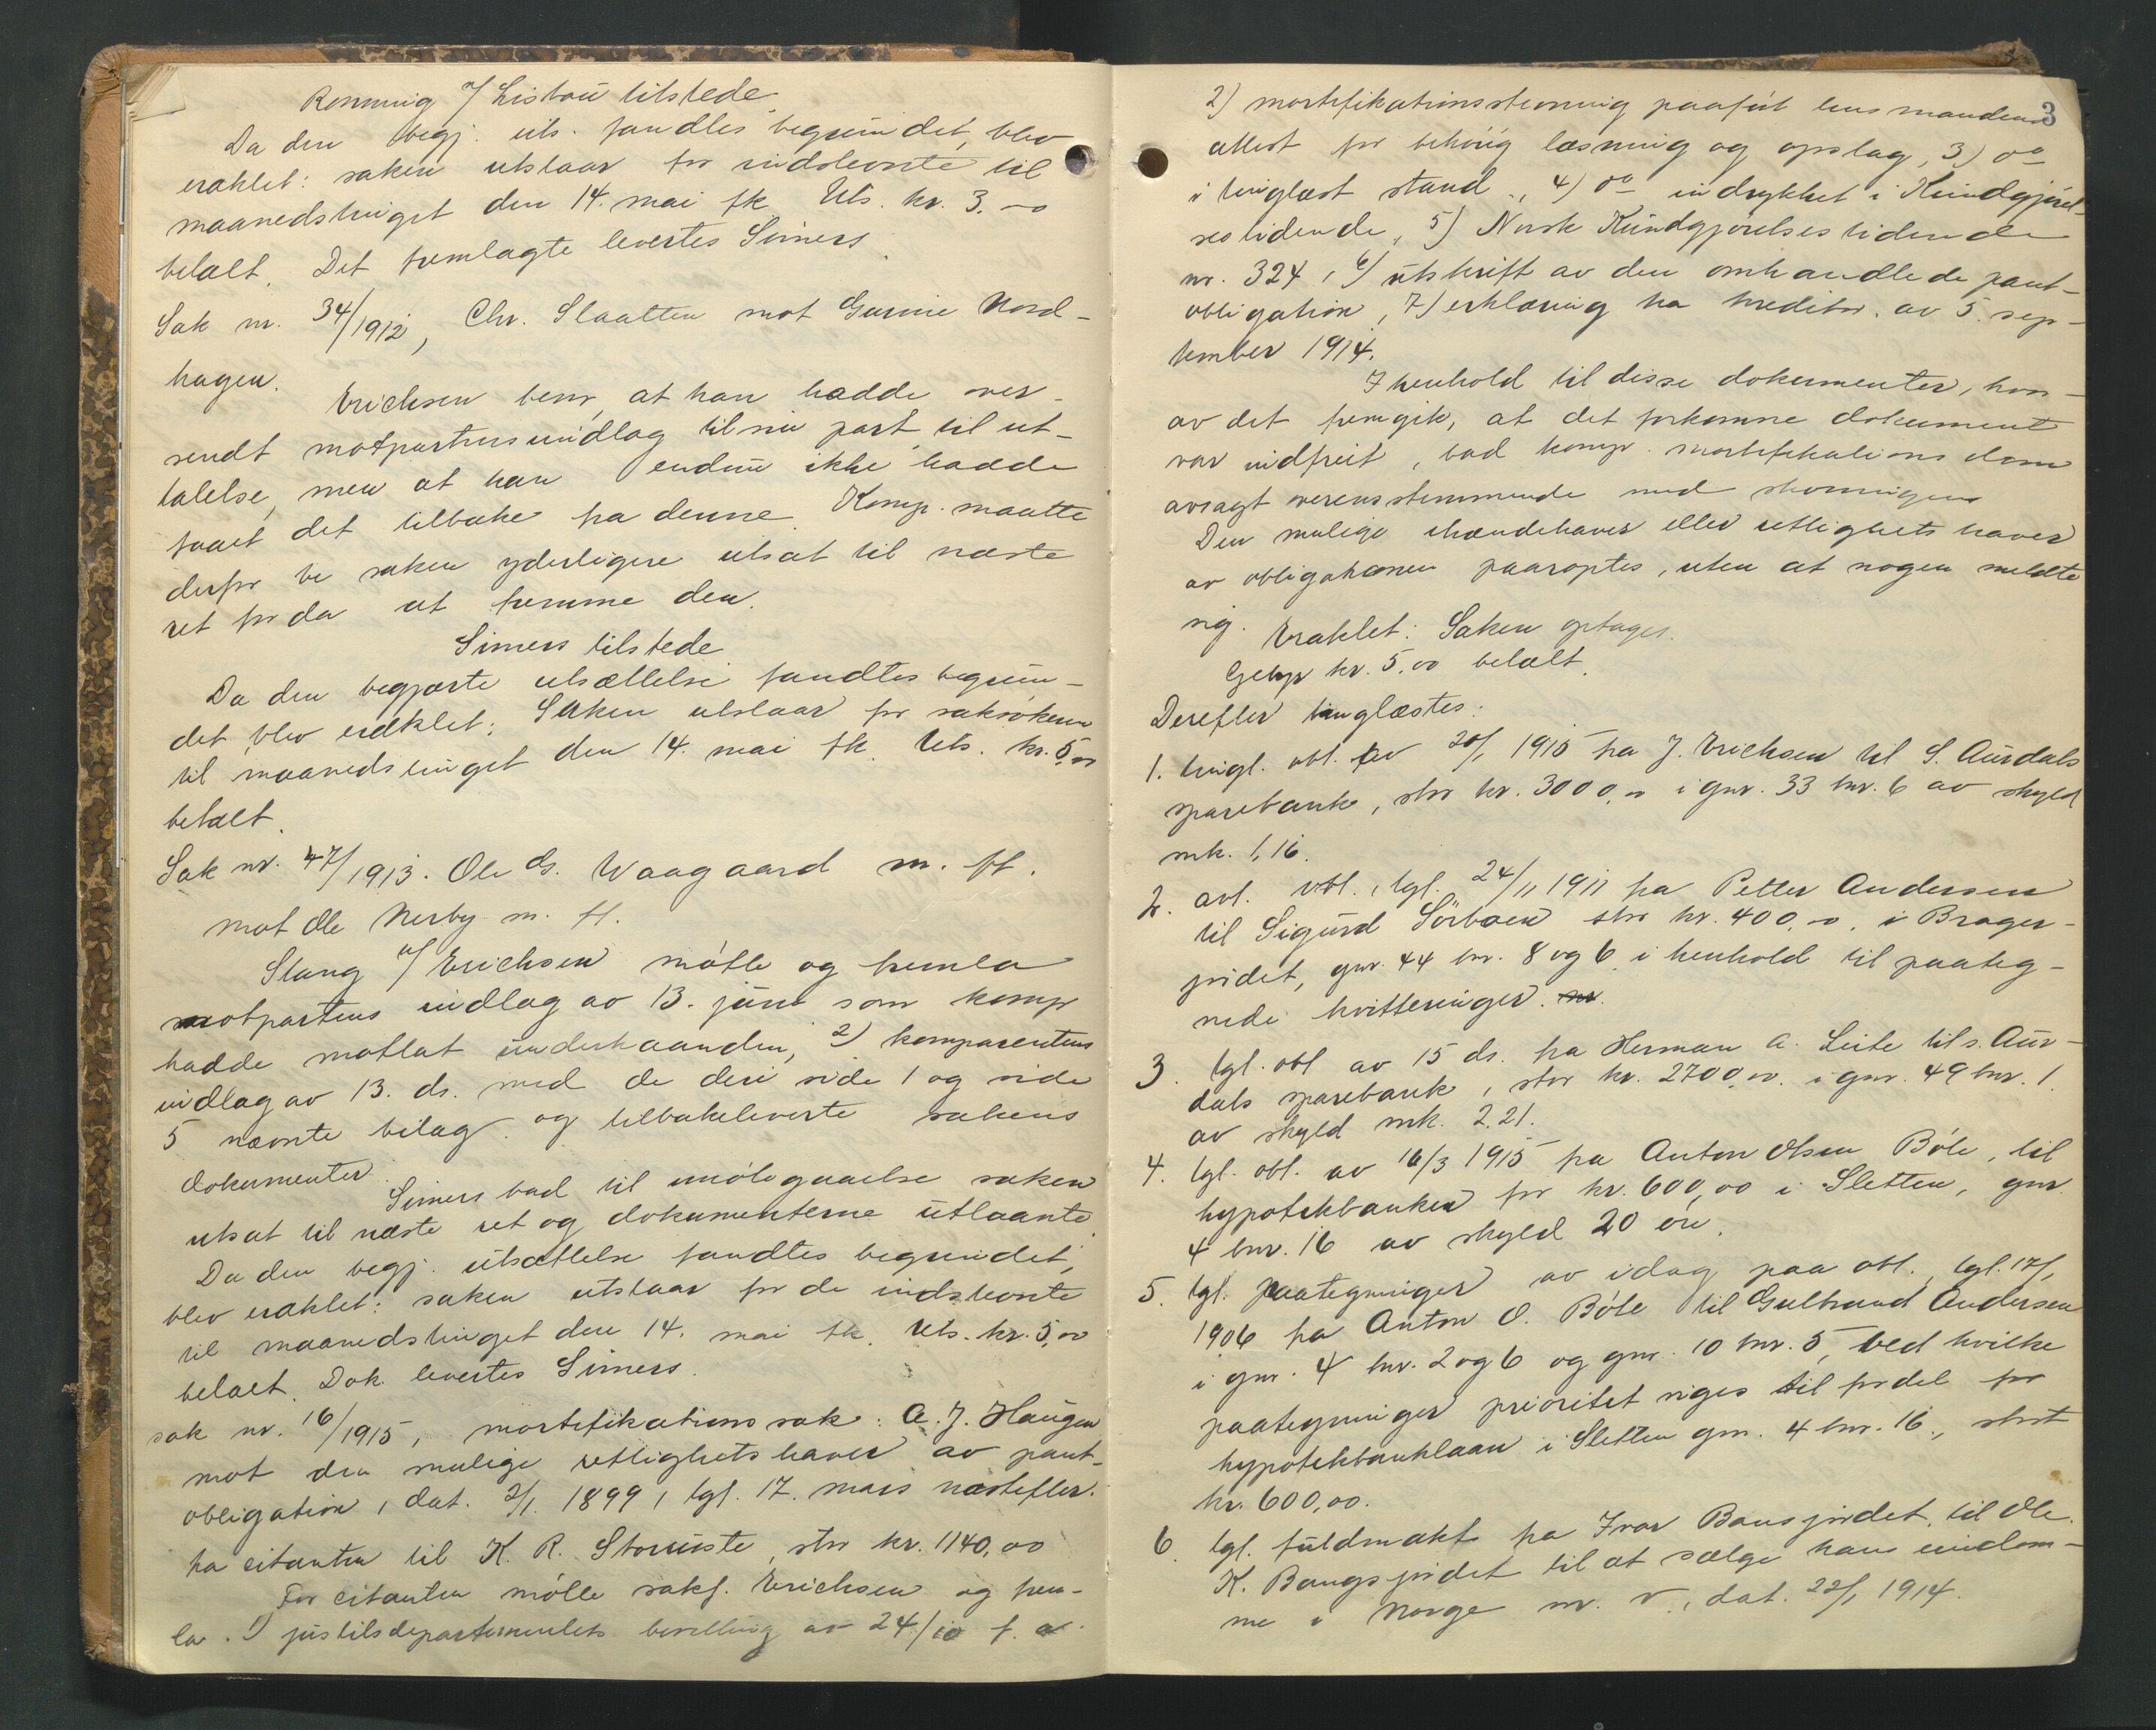 Rønning f/ Listou tilstede.
Da den begj. uts. fandtes begrundet, blev
eraklet: saken utstaar for indstevnte til
maanedstinget den 14. mai fk. Uts. kr. 3.00
betalt. Det fremlagte levertes Simers
Sak nr. 34/1912, Chr. Slaatten mot Gunnie Nord-
hagen.
Erichsen bem. at han hadde over-
sendt motpartens indlag til sin part til ut-
talelse, men at han endnu ikke hadde
faaet det tilbake fra denne. Komp. maatte
derfor be saken yderligere utsat til næste
ret for da at fremme den.
Simers tilstede
Da den begjærte utsættelse fandtes begrun-
det blev eraklet: Saken utstaar for saksøkeren
til maanedstinget den 14. mai fk. Uts. kr. 5,00
betalt.
Sak nr. 47/1913. Ole G. Waagaard m. fl.
mot Ole Nerby m. fl.
Stang f/ Erichsen møtte og fremla
motpartens indlag av 13. juni som komp
hadde mottat underhaanden, 2) komparentens
indlag av 13. ds. med de deri side 1 og side
5 nævnte bilag og tilbakeleverte sakens
dokumenter.
Simers bad til imøtegaaelse saken
utsat til næste ret og dokumenterne utlaante.
Da den begj. utsættelse fandtes begrundet,
blev eraklet: saken utstaar for de indstevnte
til maanedstinget den 14. mai fk. Uts. kr. 5,00
betalt. Dok. levertes Simers.
sak nr. 16/1915, mortifikationssak: A. J. Haugen
mot den mulige rettighetshaver av pant-
obligation, dat. 2/1 1899, tgl. 17. mars næstefter.
fra citanten til K. R. Storruste, stor kr. 1140,00
For citanten møtte sakf. Erichsen og frem-
la. 1) justitsdepartementets bevilling av 24/10 f. a.
3
2) mortifikationsstevning paaført lensmandens
attest for behørig læsning og opslag, 3) do
i tinglæst stand, 4) do indrykket i Kundgjørel-
sestidende, 5) Norsk Kundgjørelsestidende
nr. 324, 6) utskrift av den omhandlede pant-
obligation, 7) erklæring fra kreditor av 5. sep-
tember 1914.
I henhold til disse dokumenter, hvor-
av det fremgik, at det forkomne dokument
var indfriet, bad komp. mortifikations dom
avsagt overensstemmende med stevningen
Den mulige ihændehaver eller rettighetshaver
av obligationen paaroptes, uten at nogen meldte
sig. Eraklet: Saken optages.
Gebyr kr. 5.00 betalt.
Derefter tinglæstes:
1. tingl. obl. av 20/1 1915 fra J. Erichsen til S. Aurdals
sparebank, stor kr. 3000,00 i gnr. 33 bnr. 6 av skyld
mk. 1,16.
2. avl. obl., tgl. 24/11 1911 fra Petter Andersen
til Sigurd Sørboen stor kr. 400,00, i Brager-
jordet, gnr. 44 bnr. 8 og 6 i henhold til paateg-
nede kvitteringer.
3. tgl. obl av 15 ds. fra Herman A. Leite til s. Aur-
dals sparebank, stor kr. 2700,00. i gnr. 49 bnr. 1.
av skyld mk. 2.21.
4. tgl. obl. av 16/3 1915 fra Anton Olsen Bøle, til
hypotekbanken for kr. 600,00 i Sletten, gnr.
4 bnr. 16 av skyld 20 øre.
5. tgl. paategninger av idag paa obl., tgl. 17/1
1906 fra Anton O. Bøle til Gulbrand Andersen
i gnr. 4 bnr. 2 og 6 og gnr. 10 bnr. 5, ved hvilke
paategninger prioritet viges til fordel for
hypotekbanklaan i Sletten gnr. 4 bnr. 16, stort
kr. 600,00.
6. tgl. fuldmakt fra Ivar Bangsjordet, til Ole
K. Bangsjordet til at sælge hans eiendom-
me i Norge m. v., dat. 22/1 1914.